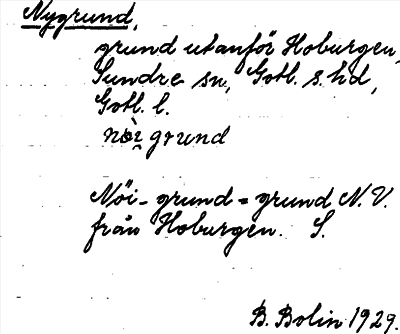 Nygrund,
grund utanför Hoburgen,
Sundre sn, Gotl. s. hd,
Gotl. l.
grund
Nöi-grund = grund N.V.
från Hoburgen. S.
B. Bolin 1929.